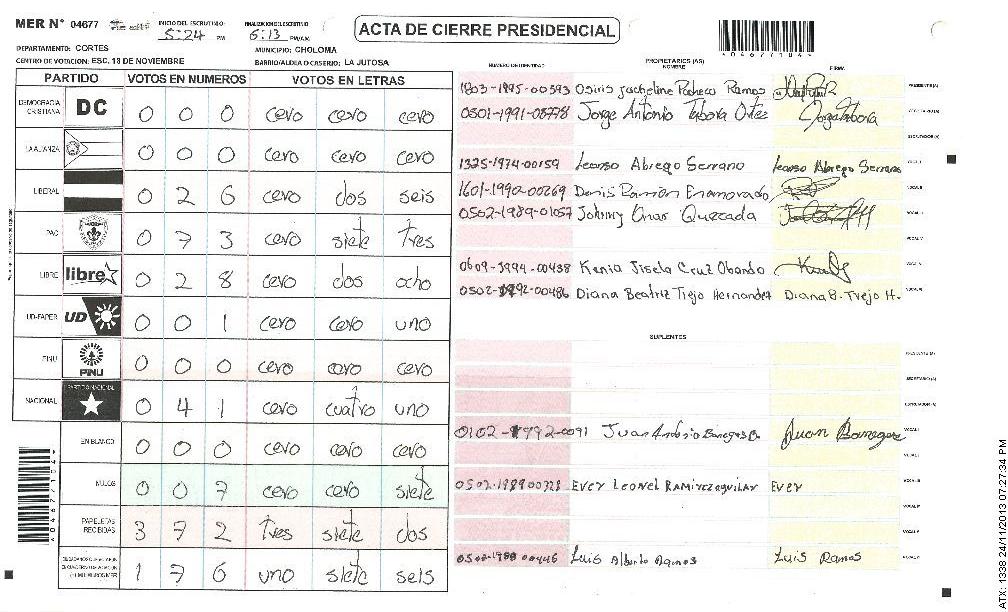 MER N° 04677 INICIO DEL ESCRUTINIO: 5:24 PM FINALIZACION DEL ESCRUTINIO 6:13 PM/AM
ACTA DE CIERRE PRESIDENCIAL
04677184
DEPARTAMENTO: CORTES MUNICIPIO: CHOLOMA
CENTRO DE VOTACION: ESC. 18 DE NOVIEMBRE BARRIO/ALDEA O CASERIO: LA JUTOSA
PARTIDO VOTOS EN NUMEROS VOTOS EN LETRAS
DEMOCRACIA CRISTIANA DC 0 0 0 cero cero cero
LA ALIANZA 0 0 0 cero cero cero
LIBERAL 0 2 6 cero dos seis
PAC 0 7 3 cero siete tres
LIBRE libre 0 2 8 cero dos ocho
UD-FAPER UD 0 0 1 cero cero uno
PINU PINU 0 0 0 cero cero cero
NACIONAL PARTIDO NACIONAL 0 4 1 cero cuatro uno
EN BLANCO 0 0 0 cero cero cero
NULOS 0 0 7 cero cero siete
PAPELETAS RECIBIDAS 3 7 2 tres siete dos
1 7 6 uno siete seis
NUMERO DE IDENTIDAD PROPIETARIOS (AS) NOMBRE FIRMA
1803-1995-00593 Osiris Jackeline Pacheco Ramos PRESIDENTE (A)
0501-1991-08778 Jorge Antonio Tabora Ortez SECRETARIO (A)
ESCRUTADOR (A)
1325-1974-00159 Leonso Abrego Serrano Leonso Abrego Serrano VOCAL I
1601-1990-00269 Denis Ramon Enamorado VOCAL II
0502-1989-01057 Johnny Omar Quezada
VOCAL IV
0609-1994-00438 Kenia Jisela Cruz Obando VOCAL V
0502-1992-00486 Diana Beatriz Trejo Hernandez Diana B. Trejo H.
SUPLENTES
PRESIDENTE (A)
SECRETARIO (A)
ESCRUTADOR (A)
0102-1992-0091 Juan Antonio Banegas B. Juan Banegas VOCAL I
0502-1989 00728 EVER LEONEL RAMIREZ AGUILAR EVER
0502-1988 00446 Luis Alberto Ramos Luis Ramos
ATX: 1338 24/11/2013 07:27:34 PM